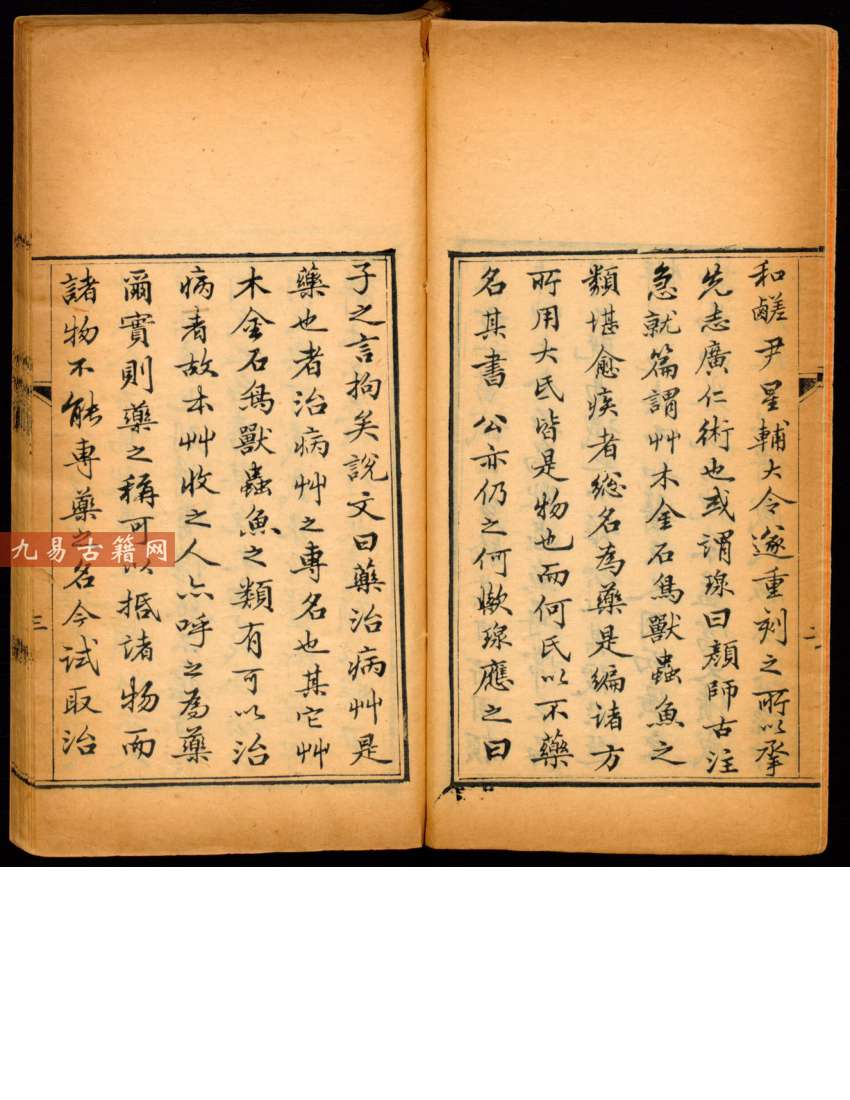 和鹺尹星輔大令遂重刻之所以承
先志廣仁術也或謂瑔曰顏師古注
急就篇謂艸木金石鳥獸蟲魚之
類堪愈疾者總名為藥是編諸方
所用大氐皆是物也而何氏以不藥
名其書 公亦仍之何歟瑔應之曰
二
子之言拘矣說文曰藥治病艸是
藥也者治病艸之專名也其它艸
木金石鳥獸蟲魚之類有可以治
病者故本艸收之人亦呼之為藥
爾實則藥之稱可以抵諸物而
諸物不能專藥之名今試取治
三
九易古籍网